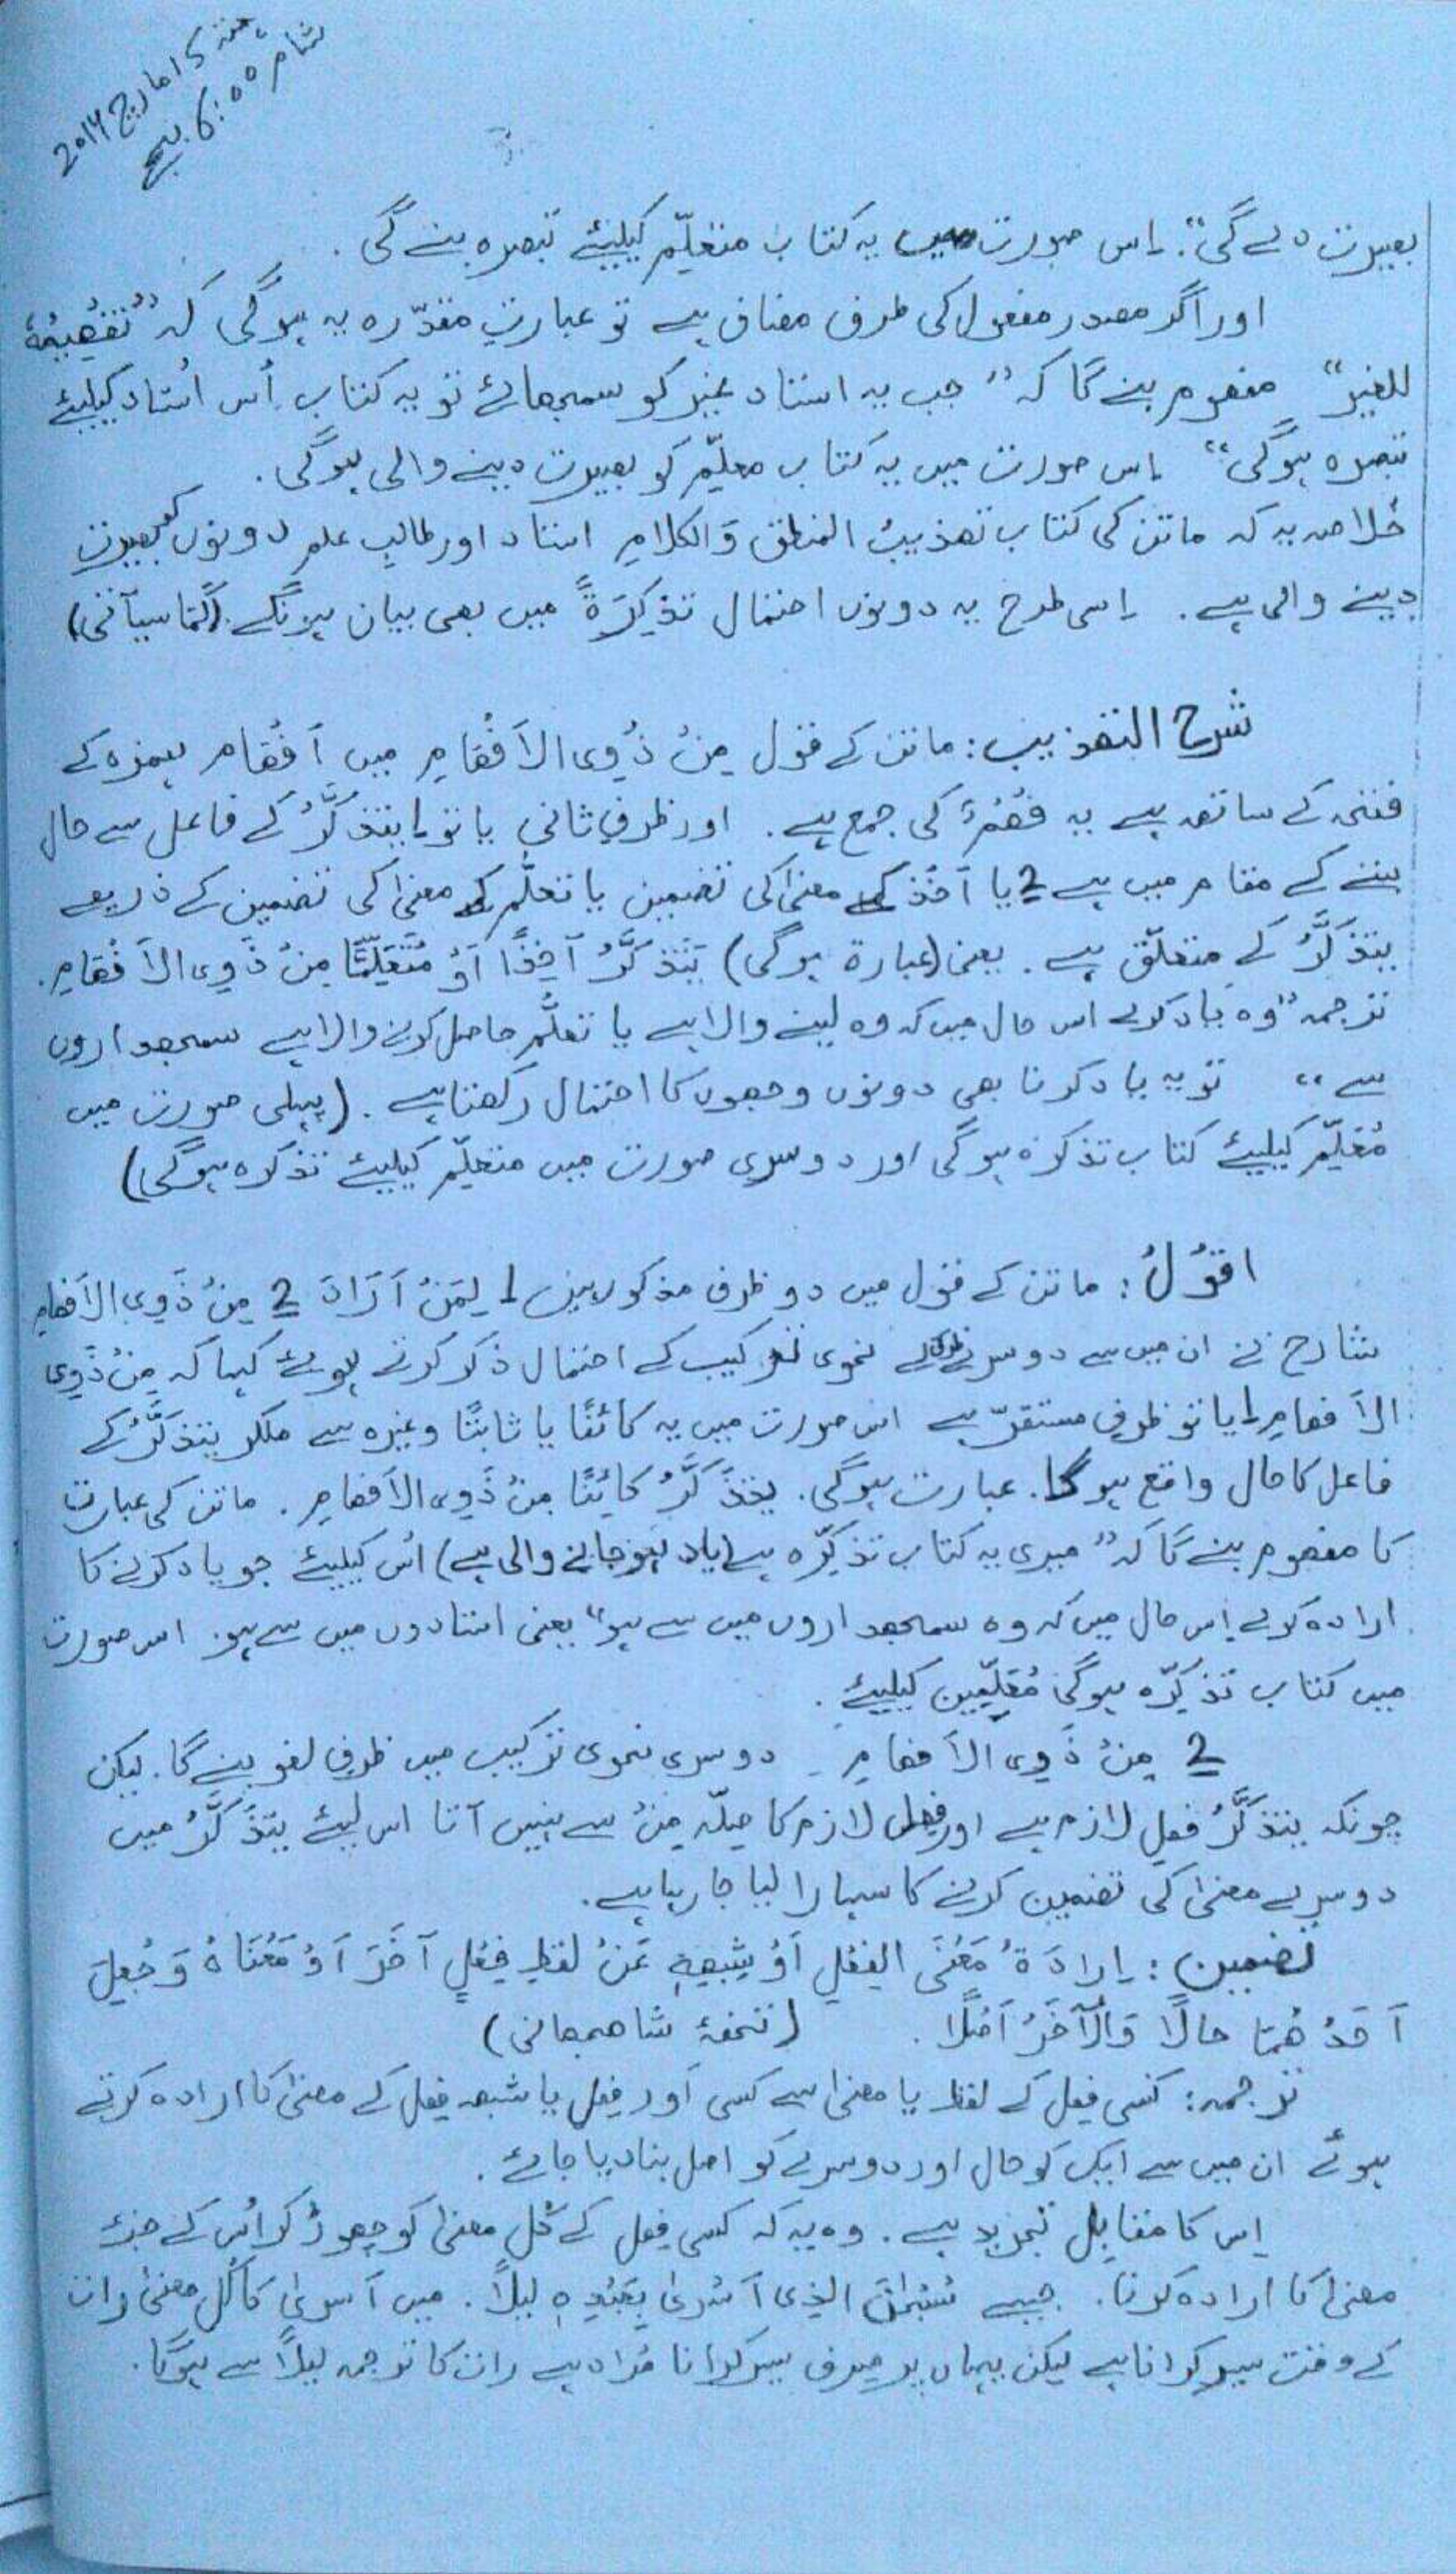 ہفتہ 5 مارچ 2016
شام 6:00 بجے
بصیرت دے گی"۔ اِس صورت میں یہ کتاب متعلِّم کیلیئے تبصرہ بنے گی ۔
اور اگر مصدر مفعول کی طرف مضاف ہے تو عبارتِ مقدّرہ یہ ہوگی کہ "تَفْھِیْمُہٗ
للغیر" مفھوم بنے گا کہ "جب یہ استاد غیر کو سمجھائے تو یہ کتاب اُس اُستاد کیلیئے
تبصرہ ہوگی" اِس صورت میں یہ کتاب معلِّم کو بصیرت دینے والی ہوگی ۔
خلاصہ یہ کہ ماتن کی کتاب تھذیبُ المنطق وَالکلامِ استاد اور طالبِ علم دونوں کو بصیرت
دینے والی ہے ۔ اِسی طرح یہ دونوں احتمال تذکِرَۃً میں بھی بیان ہونگے ۔(کَمَا سیأتی)
شرح التھذیب : ماتن کے قول مِنْ ذَوِی الاَفْھَامِ میں اَفْھَام ہمزہ کے
فتحہ کے ساتھ ہے یہ فَھْمٌ کی جمع ہے ۔ اور ظرفِ ثانی یا تو 1 یتذکَّرُ کے فاعل سے حال
بننے کے مقام میں ہے 2 یا اَخْذ کے معنیٰ کی تضمین یا تعلُّم کے معنیٰ کی تضمین کے ذریعے
یتذکَّرُ کے متعلّق ہے ۔ یعنی (عبارۃ ہوگی) یَتَذکَّرُ آخِذًا اَوْ مُتَعَلِّمًا مِنْ ذَوِی الاَفْھَامِ ۔
ترجمہ "وہ یاد کرے اس حال میں کہ وہ لینے والا ہے یا تعلُّم حاصل کرنے والا ہے سمجھداروں
سے" تو یہ یاد کرنا بھی دونوں وجھوں کا احتمال رکھتا ہے ۔ (پہلی صورت میں
مُعَلِّم کیلیئے کتاب تذکرہ ہوگی اور دوسری صورت میں متعلِّم کیلیئے تذکرہ ہوگی)
اقوْلُ : ماتن کے قول میں دو ظرف مذکور ہیں 1 لِمَنْ اَرَادَ 2 مِنْ ذَوِی الاَفھامِ
شارح نے ان میں سے دوسرے ظرف کے نحوی ترکیب کے احتمال ذکر کرتے ہوئے کہا کہ مِنْ ذَوِی
الاَفھامِ 1 یا تو ظرفِ مستقرّ ہے اس صورت میں یہ کائنًا یا ثابتًا وغیرہ سے ملکر یتذکَّرُ کے
فاعل کا حال واقع ہوگا ۔ عبارت ہوگی ۔ یتذَکَّرُ کَائِنًا مِنْ ذَوِی الاَفھامِ ۔ ماتن کی عبارت
کا مفھوم بنے گا کہ "میری یہ کتاب تذکِرہ ہے (یاد ہوجانے والی ہے) اُس کیلیئے جو یاد کرنے کا
ارادہ کرے اِس حال میں کہ وہ سمجھداروں میں سے ہو" یعنی استادوں میں سے ہو۔ اس صورت
میں کتاب تذکِرہ ہوگی مُعَلِّمِین کیلیئے ۔
2 مِنْ ذَوِی الاَفھامِ دوسری نحوی ترکیب میں ظرفِ لغو بنے گا ۔ لیکن
چونکہ یتذکَّرُ فعلِ لازم ہے اور فعلِ لازم کا صِلہ مِنْ سے نہیں آتا اس لیئے یتَذَکَّرُ میں
دوسرے معنیٰ کی تضمین کرنے کا سہارا لیا جارہا ہے ۔
تضمین : اِرادَۃُ مَعْنَی الفِعْلِ اَوْ شِبْھِہٖ عَنْ لفظِ فِعْلٍ آخَرَ اَوْ مَعْنَاہُ وَ جُعِلَ
اَحَدُھُمَا حالًا وَالْآخَرُ اَصْلًا ۔ (تحفۂ شاھجھانی)
ترجمہ : کسی فعل کے لفظ یا معنیٰ سے کسی اَور فِعل یا شبہ فِعل کے معنیٰ کا ارادہ کرتے
ہوئے ان میں سے ایک کو حال اور دوسرے کو اصل بنادیا جائے ۔
اِس کا مقابِل تجرید ہے ۔ وہ یہ کہ کسی فِعل کے کُل معنیٰ کو چھوڑ کر اُس کے جزء
معنیٰ کا ارادہ کرنا ۔ جیسے سُبْحٰنَ الذی اَسْرٰی بِعَبْدِہٖ لیلًا ۔ میں اَسریٰ کا کُل معنیٰ رات
کے وقت سیر کرانا ہے لیکن یہاں پر صِرف سیر کرانا مُراد ہے رات کا ترجمہ لیلًا سے ہوگا ۔